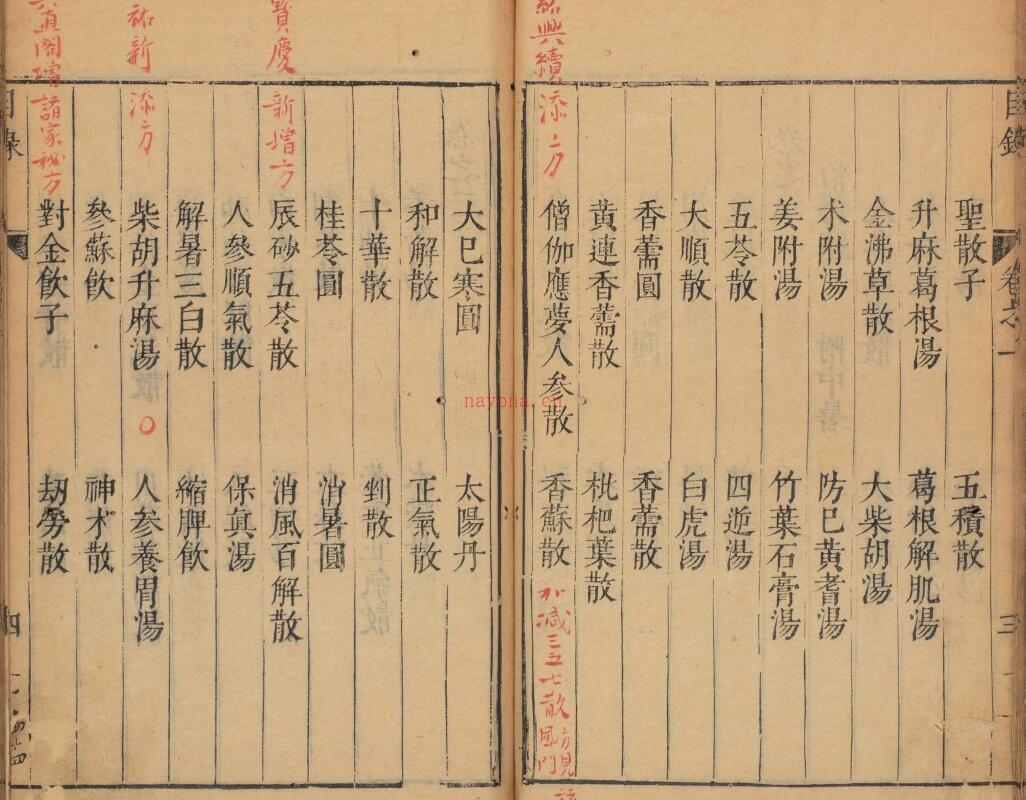 目錄
卷之一
三
聖散子 五積散
升麻葛根湯 葛根解肌湯
金沸草散 大柴胡湯
术附湯 防巳黃耆湯
姜附湯 竹葉石膏湯
五苓散 四逆湯
大順散 白虎湯
香薷圓 香薷散
黃連香薷散 枇杷葉散
紹興續添方
僧伽應夢人参散 香蘇散 加减三五七散方見風門
大巳寒圓 太陽丹
和解散 正氣散
十華散 㓨散
桂苓圓 消暑圓
寶慶新增方
辰砂五苓散 消風百解散
人參順氣散 保眞湯
解暑三白散 縮脾飲
祐新添方
柴胡升麻湯 人参養胃湯
參蘇飲 神术散
直閣增諸家秘方
對金飲子 劫勞散
目錄
四
nayona.cn